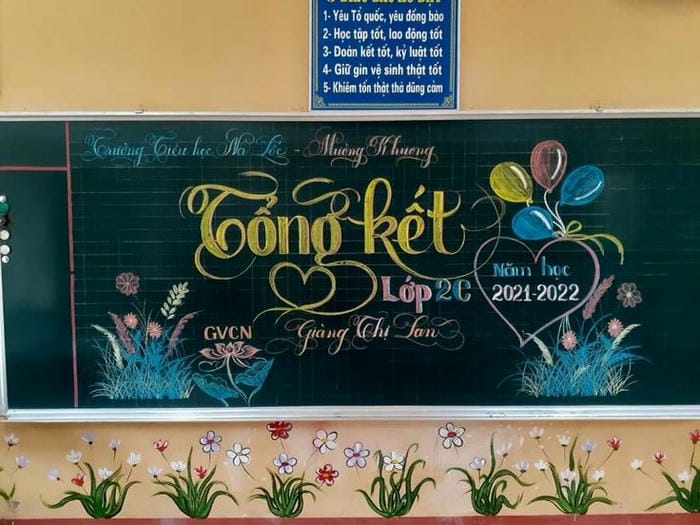 5 ĐIỀU BÁC HỒ DẠY
1- Yêu Tổ quốc, yêu đồng bào
2- Học tập tốt, lao động tốt
3- Đoàn kết tốt, kỷ luật tốt
4- Giữ gìn vệ sinh thật tốt
5- Khiêm tốn thật thà dũng cảm
Trường Tiểu học Na Lốc - Mường Khương
Tổng kết
Lớp 2C
Năm học
2021-2022
GVCN
Giàng Thị Lan